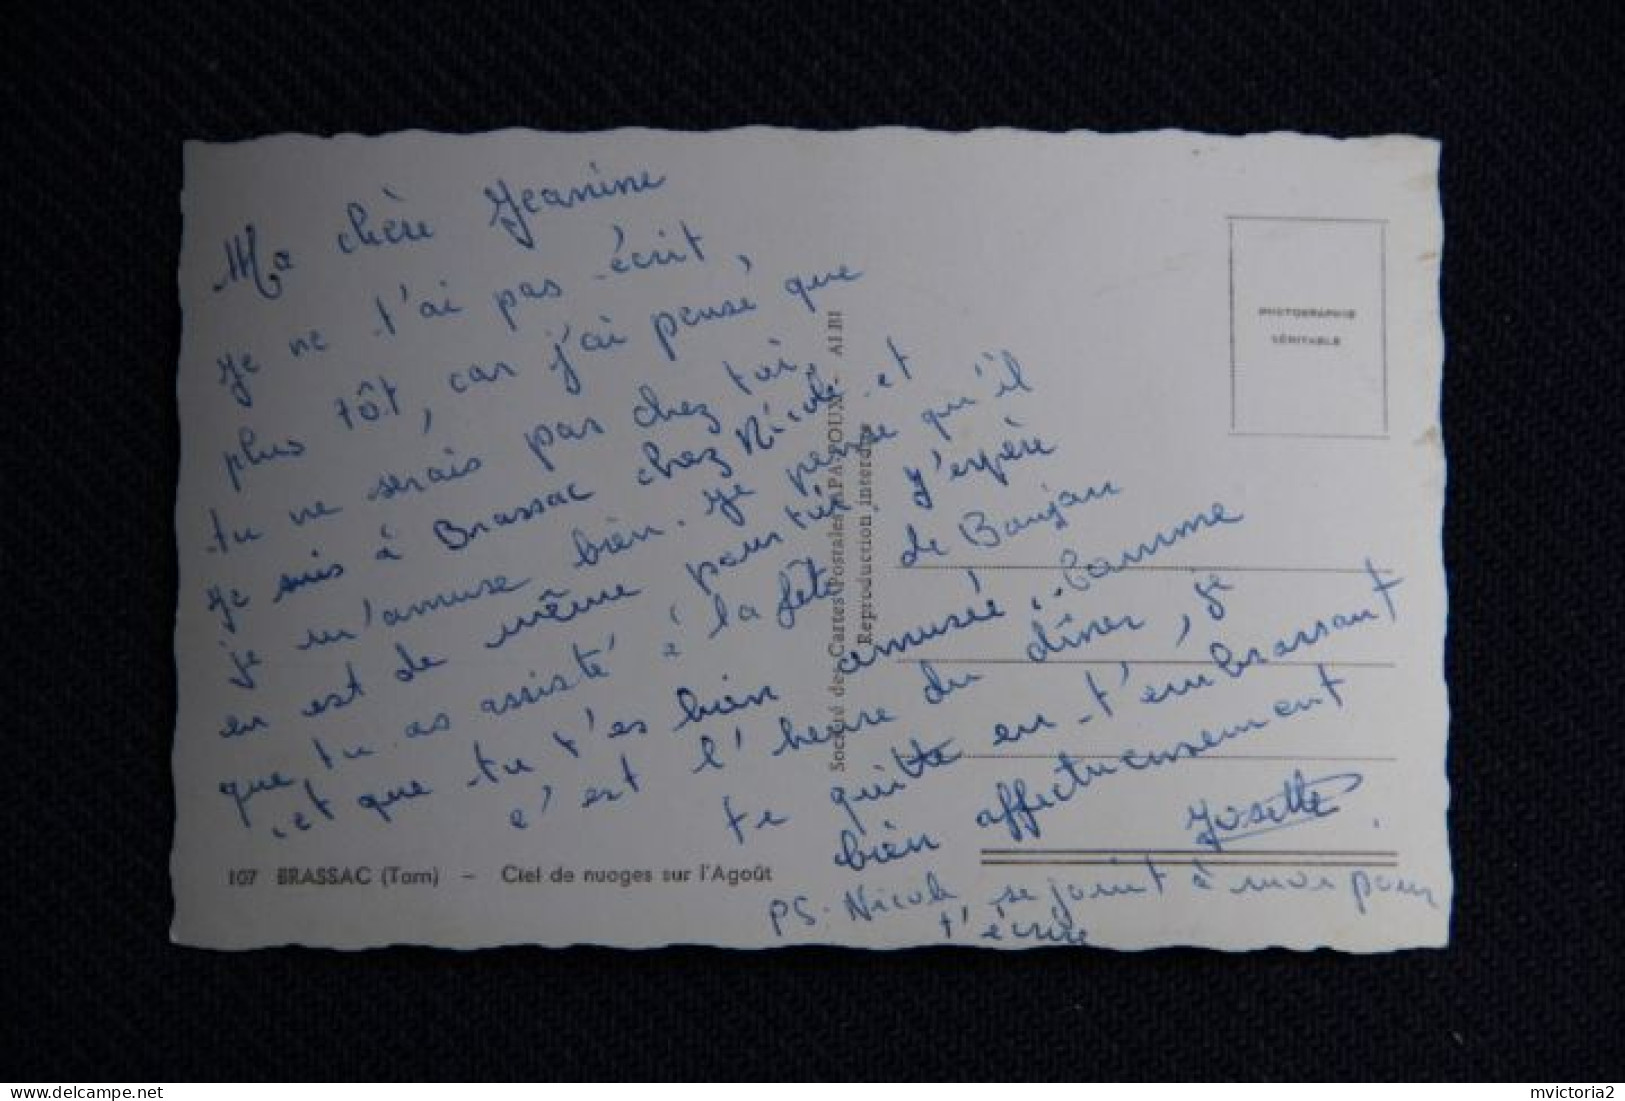 Ma chère Jeanine
Je ne t'ai pas écrit,
plus tôt, car j'ai pensé que
tu ne serais pas chez toi.
Je suis à Brassac chez Nicole et
je m'amuse bien. Je pense qu'il
en est de même pour toi. J'espère
que tu as assisté à la fête de Boujan
et que tu t'es bien amusée. Comme
c'est l'heure du dîner, je
te quitte en t'embrassant
bien affectueusement
Josette
PS. Nicole se joint à moi pour
t'écrire
107 BRASSAC (Tarn) - Ciel de nuages sur l'Agoût
Société des Cartes Postales APA-POUX - ALBI
Reproduction interdite
PHOTOGRAPHIE
VÉRITABLE
mvictoria2